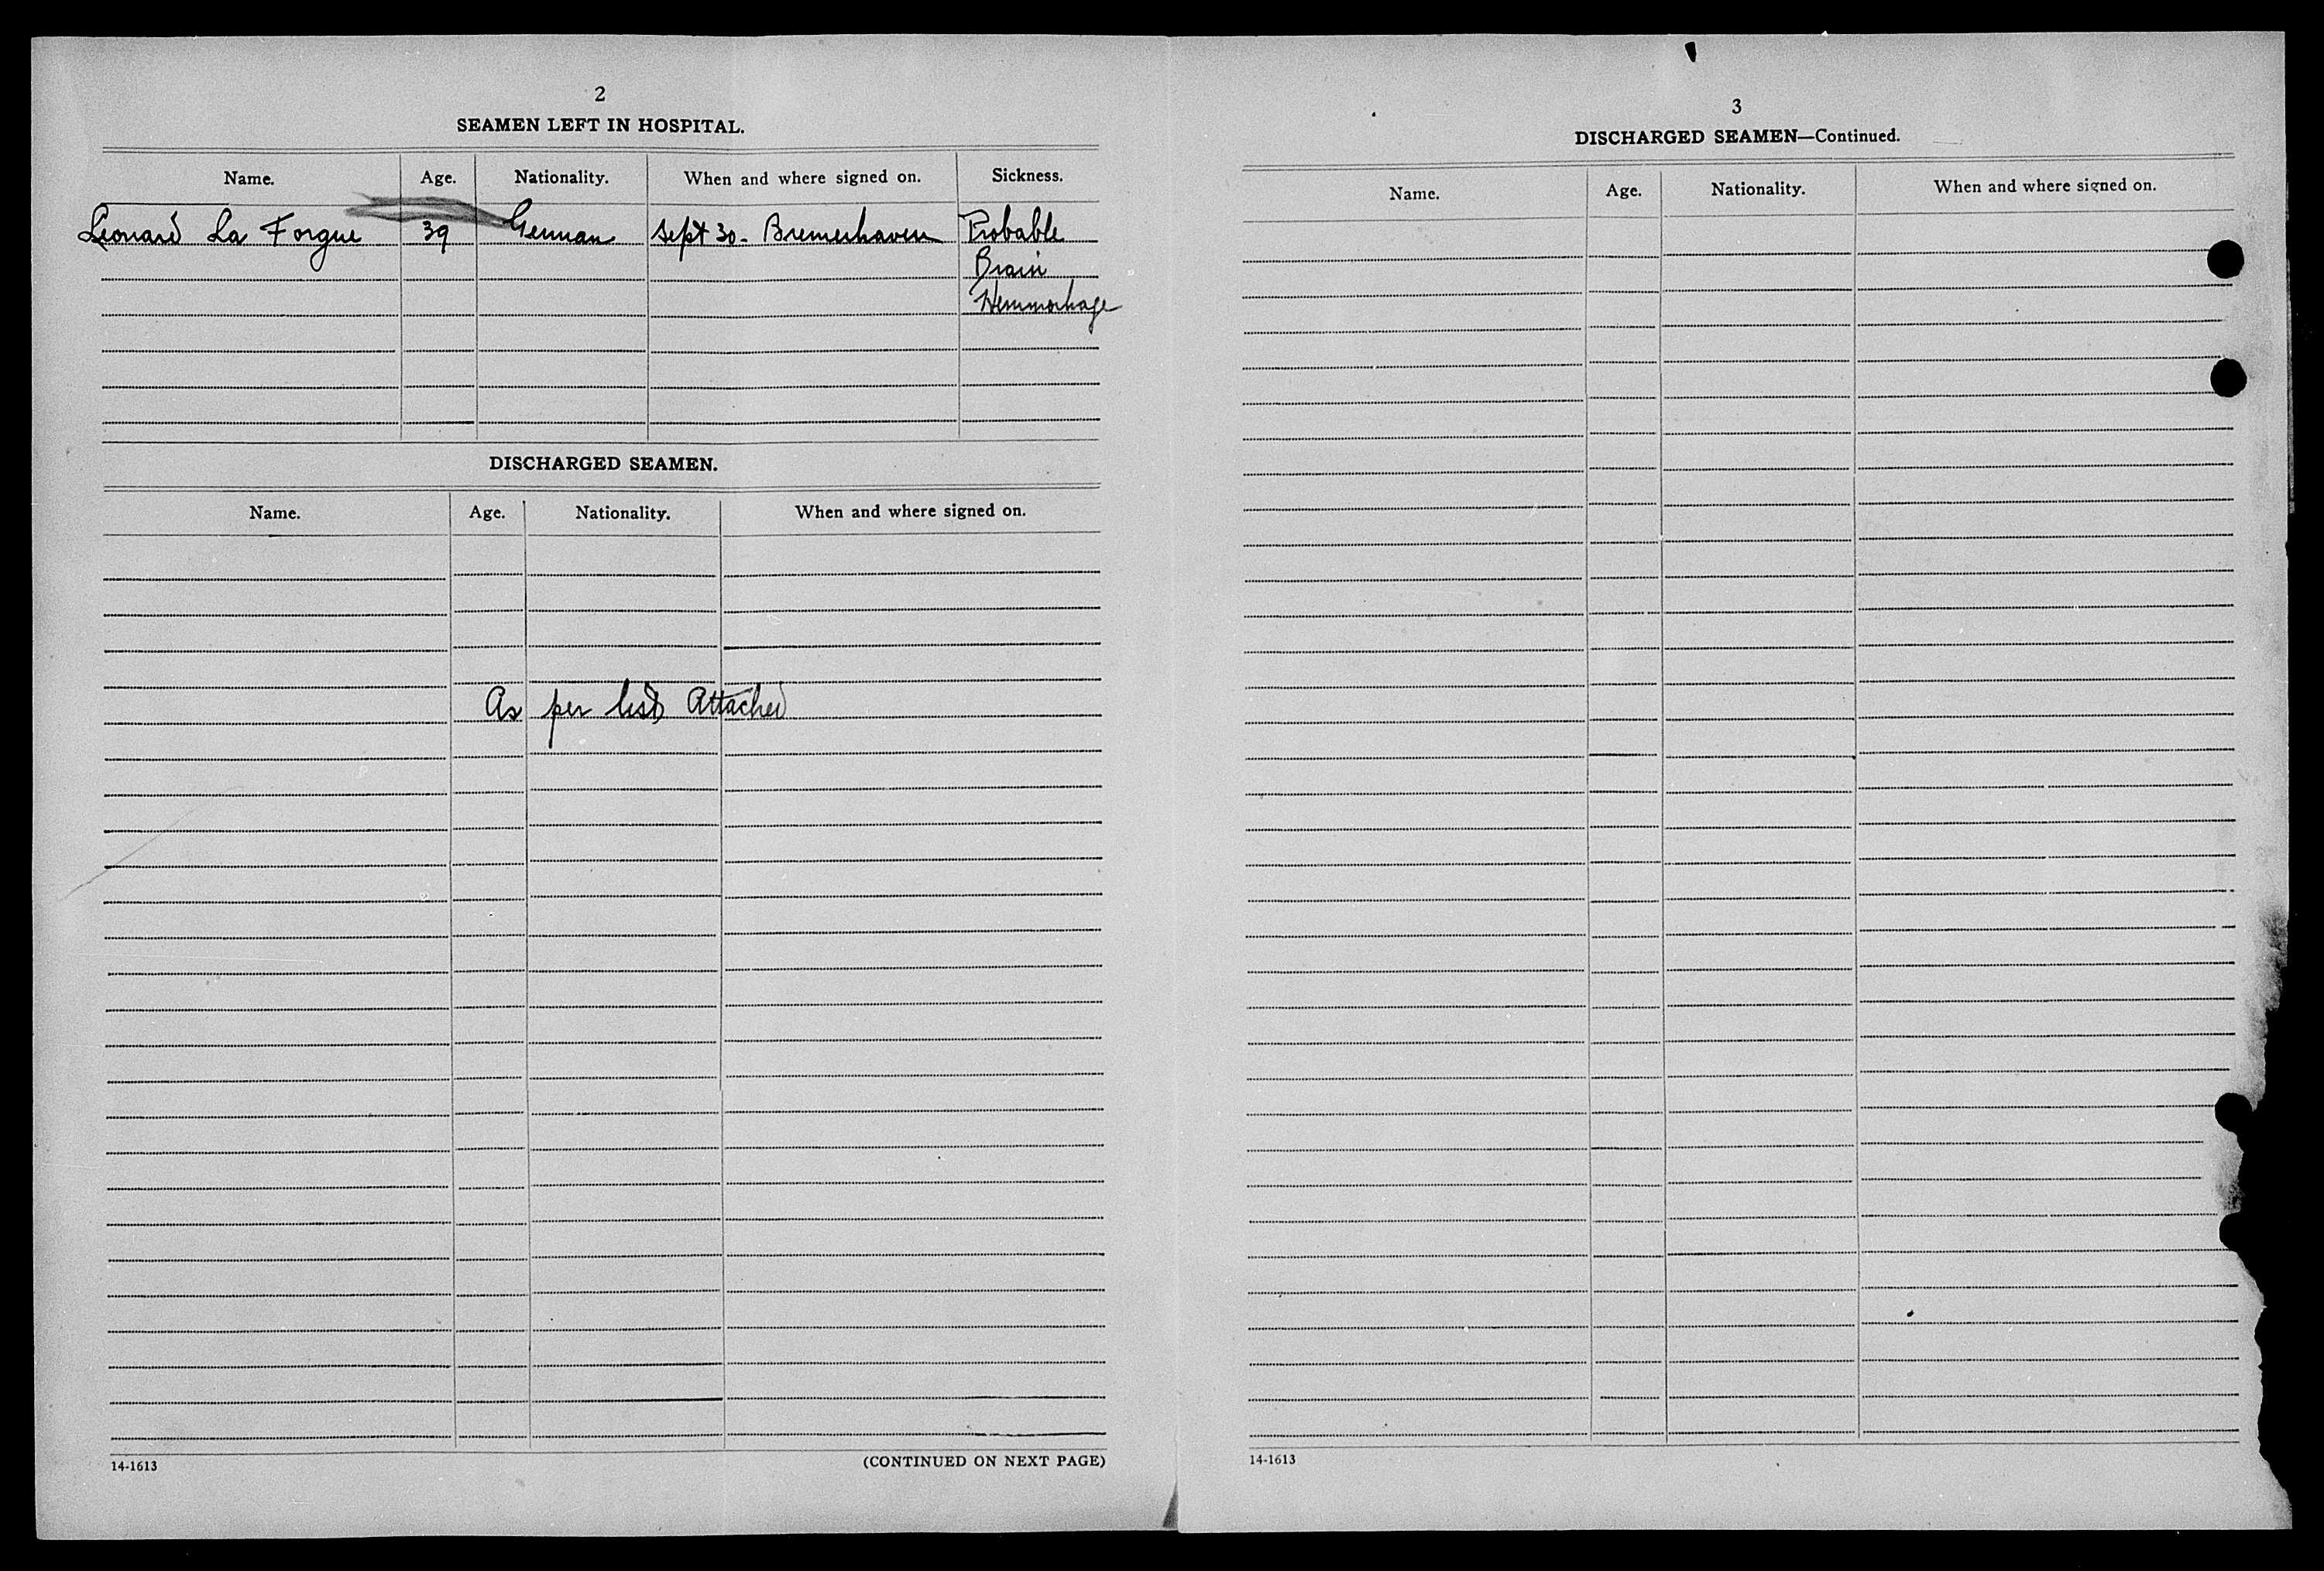 2
SEAMEN LEFT IN HOSPITAL.
Name. Age. Nationality. When and where signed on. Sickness.
Leonard La Forgue 39 German Sept 30 - Bremerhaven Probable
Brain
Hemmorhage
DISCHARGED SEAMEN.
Name. Age. Nationality. When and where signed on.
As per list Attached
14-1613
(CONTINUED ON NEXT PAGE)
3
DISCHARGED SEAMEN—Continued.
Name. Age. Nationality. When and where signed on.
14-1613